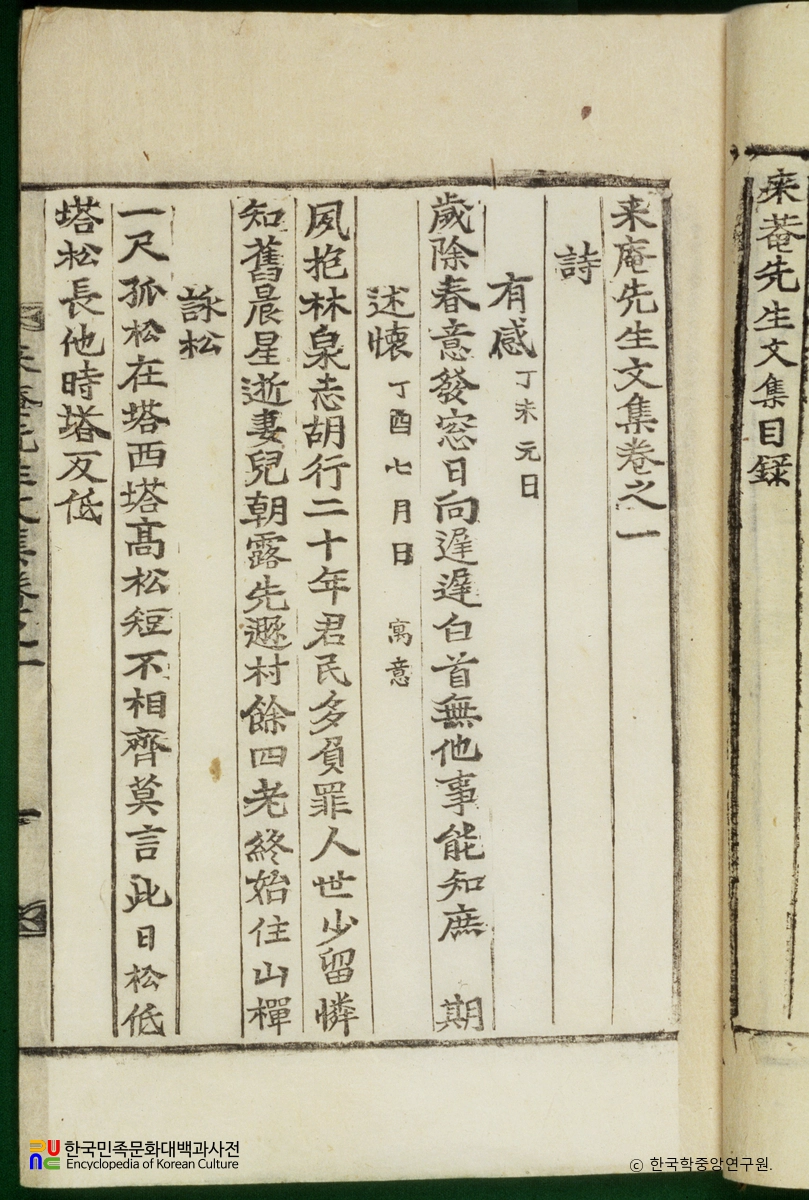 来菴先生文集目録
来庵先生文集卷之一
詩
有感 丁未元日
歲除春意發窓日向遲遲白首無他事能知庶 期
述懷 丁酉七月日 寓意
夙抱林泉志胡行二十年君民多負罪人世少留憐
知舊晨星逝妻兒朝露先遯村餘四老終始住山樿
詠松
一尺孤松在塔西塔高松短不相齊莫言此日松低
塔松長他時塔反低
한국민족문화대백과사전
Encyclopedia of Korean Culture
© 한국학중앙연구원.